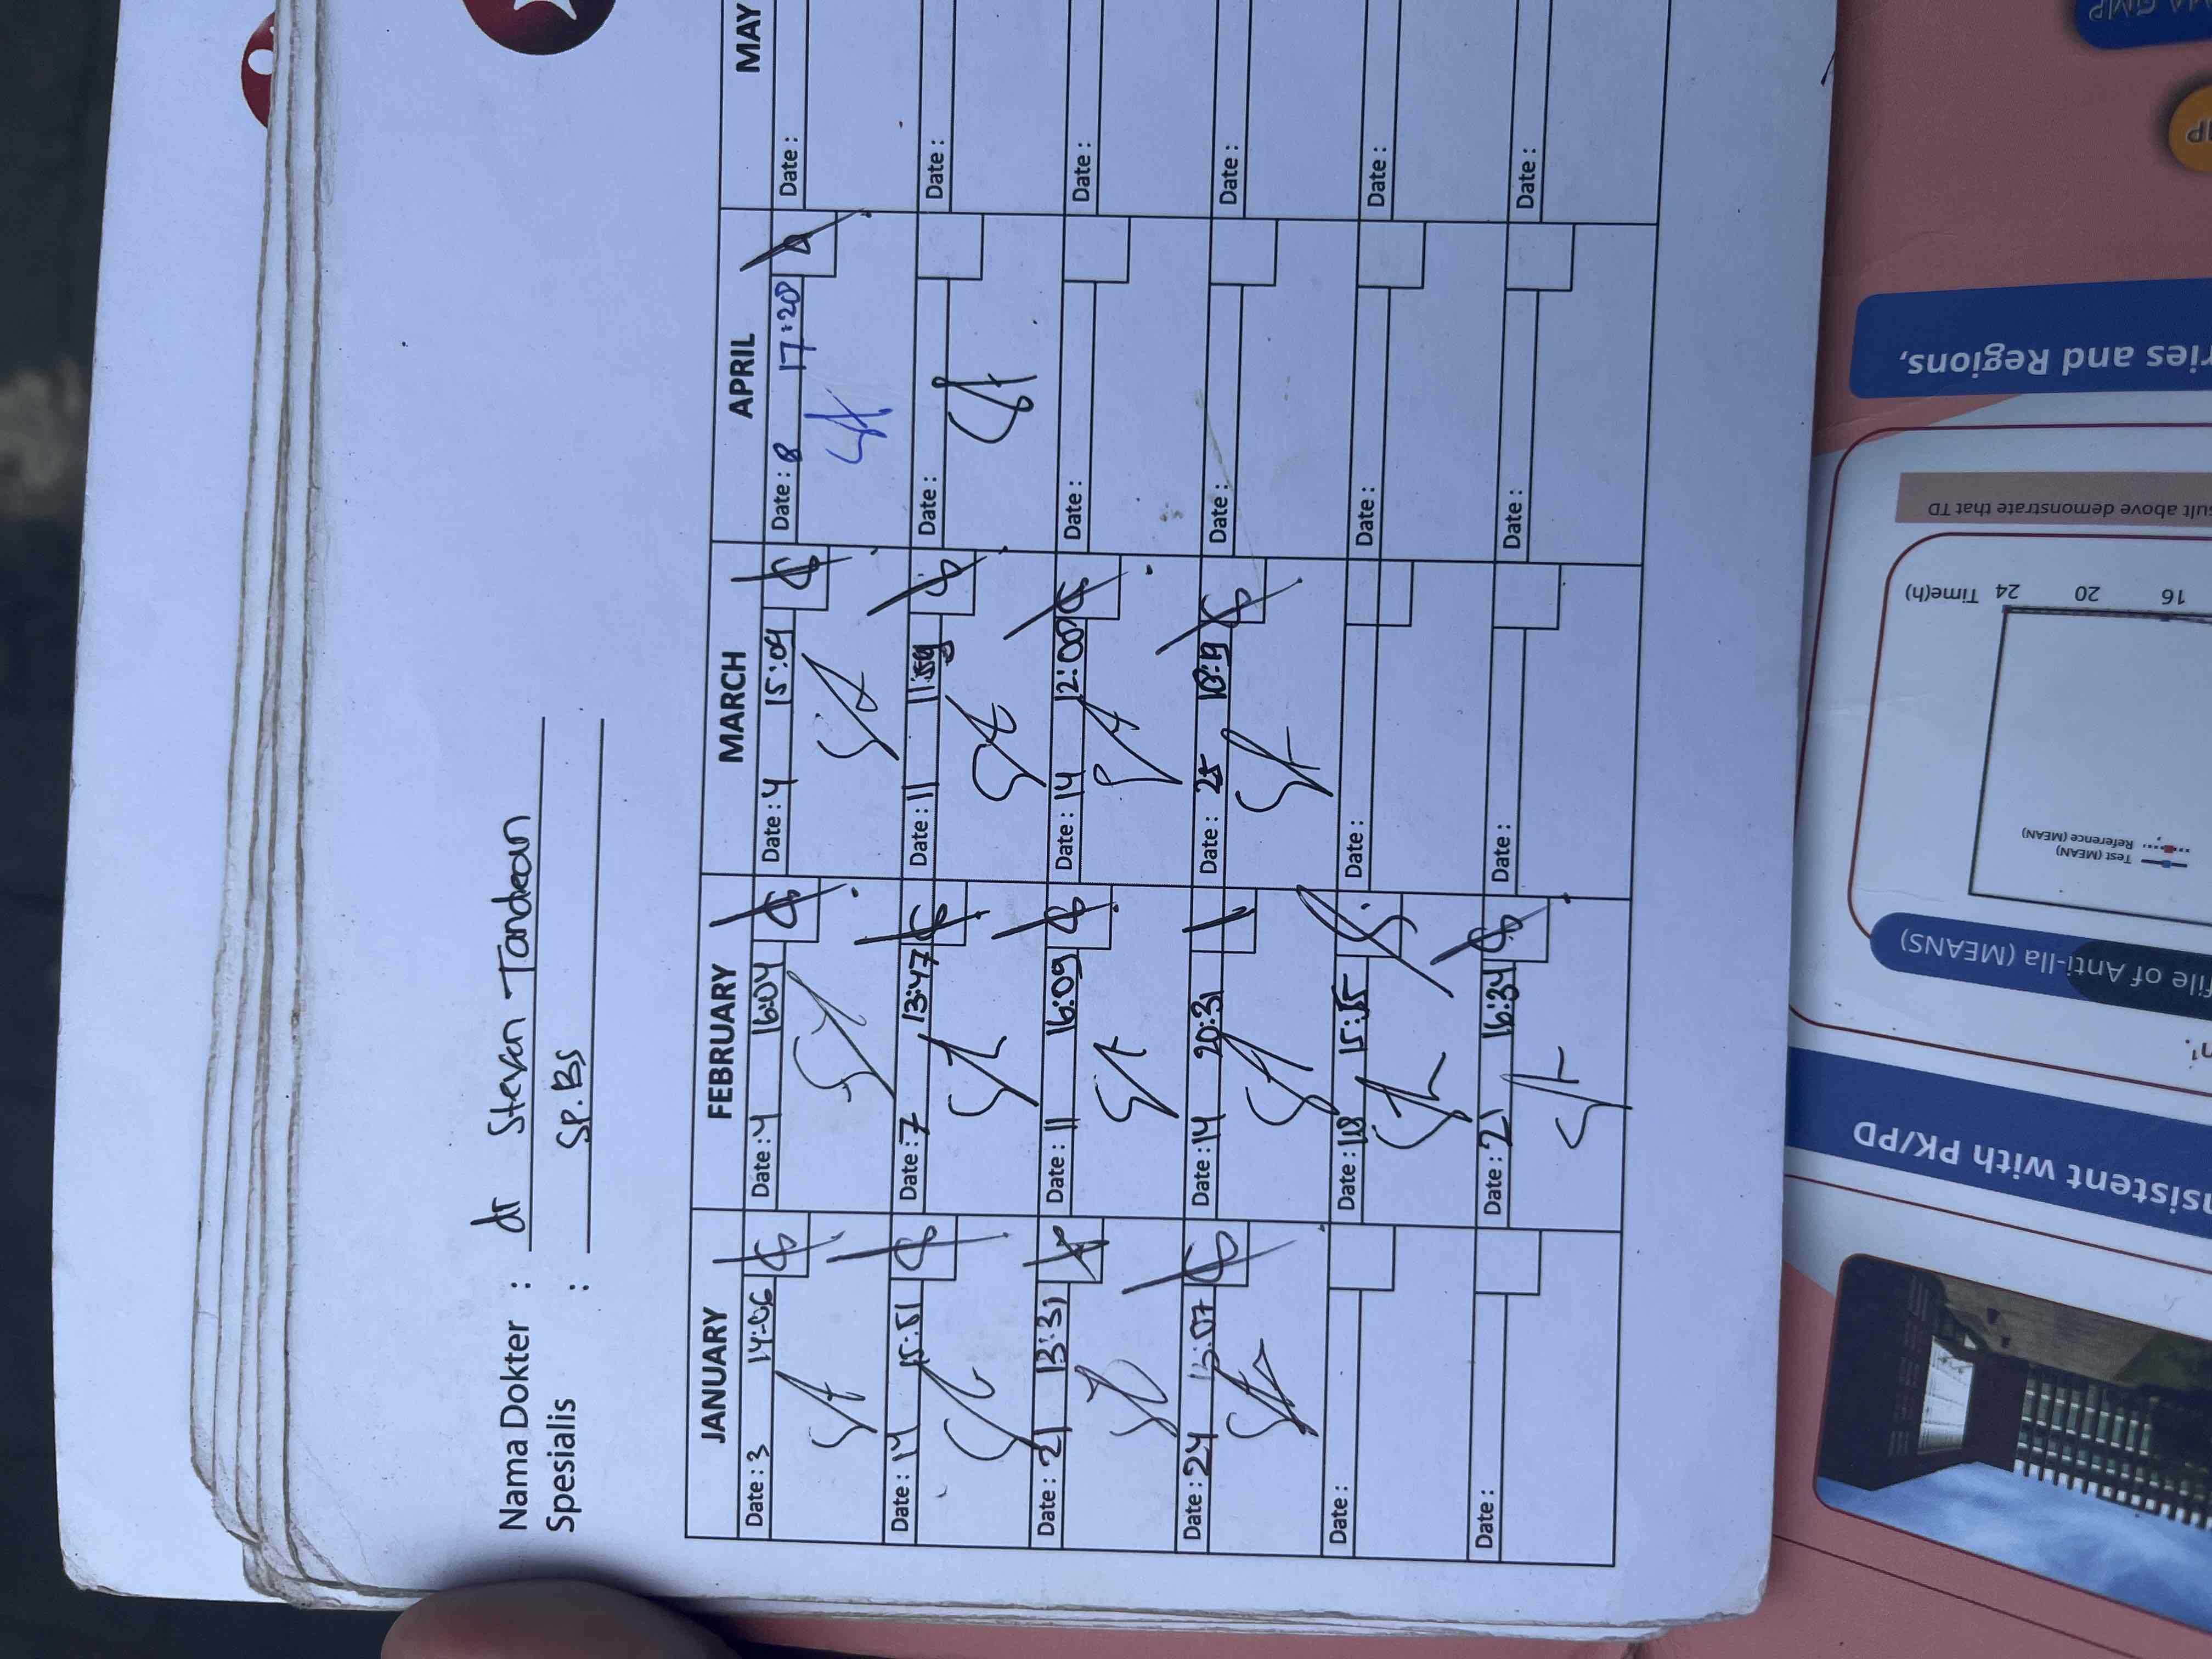 Nama Dokter : dr Steven Tandean
Spesialis : Sp. BS
JANUARY FEBRUARY MARCH APRIL MAY
Date : 3 14:06 Date : 4 16:04 Date : 4 15:09 Date : 8 17:20 Date :
Date : 14 15:51 Date : 7 13:47 Date : 11 11:59 Date : Date :
Date : 21 13:31 Date : 11 16:09 Date : 14 12:00 Date : Date :
Date : 24 Date : 14 20:31 Date : 25 Date : Date :
Date : Date : 18 15:55 Date : Date : Date :
Date : Date : 21 16:34 Date : Date : Date :
ries and Regions,
sult above demonstrate that TD
Time(h) 24 20 16
Test (MEAN)
Reference (MEAN)
file of Anti-IIa (MEANS)
nsistent with PK/PD